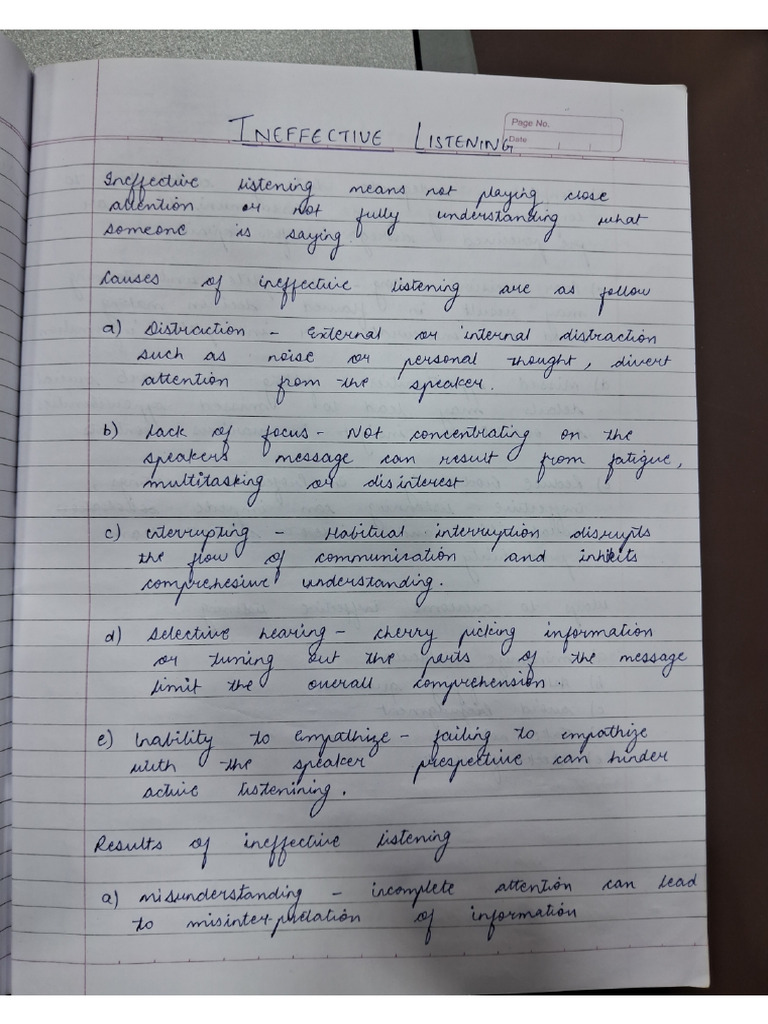 INEFFECTIVE LISTENING
Page No.
Date
Ineffective listening means not playing close
attention or not fully understanding what
someone is saying.
Causes of ineffective listening are as follow
a) Distraction - External or internal distraction
such as noise or personal thought, divert
attention from the speaker.
b) Lack of focus - Not concentrating on the
speakers message can result from fatigue,
multitasking or disinterest
c) interrupting - Habitual interruption disrupts
the flow of communication and inhibits
comprehesive understanding.
d) Selective hearing - cherry picking information
or tuning out the parts of the message
limit the overall comprehension.
e) Inability to empathize - failing to empathize
with the speaker prespective can hinder
active listenining.
Results of ineffective listening
a) misunderstanding - incomplete attention can lead
to misinter-pretation of information